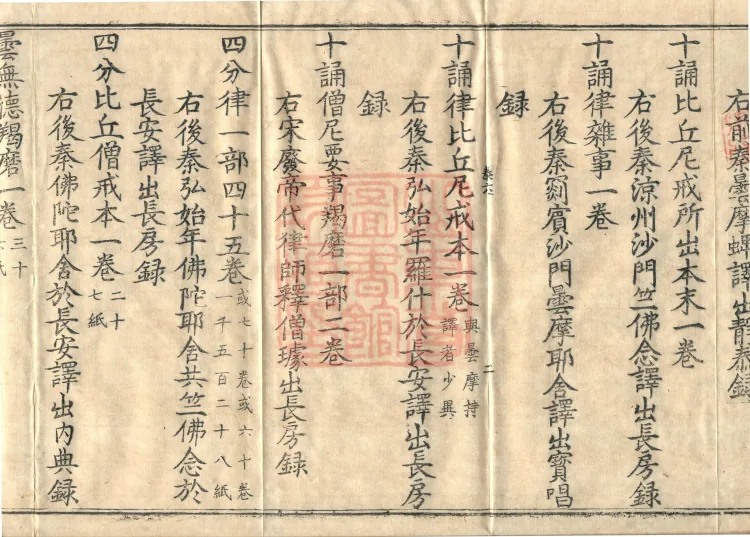 右前秦曇摩蜱譯出靜泰録
十誦比丘尼戒所出本末一卷
右後秦涼州沙門竺佛念譯出長房録
十誦律雜事一卷
右後秦罽賓沙門曇摩耶舍譯出寶唱
録
十誦律比丘尼戒本一卷 與曇摩持譯者少異
右後秦弘始年羅什於長安譯出長房
録
十誦僧尼要事羯磨一部二卷
右宋廢帝代律師釋僧璩出長房録
四分律一部四十五卷 或七十卷或六十卷一千五百二十八紙
右後秦弘始年佛陀耶舍共竺佛念於
長安譯出長房録
四分比丘僧戒本一卷 二十七紙
右後秦佛陀耶舍於長安譯出内典録
曇無德羯磨一卷 三十